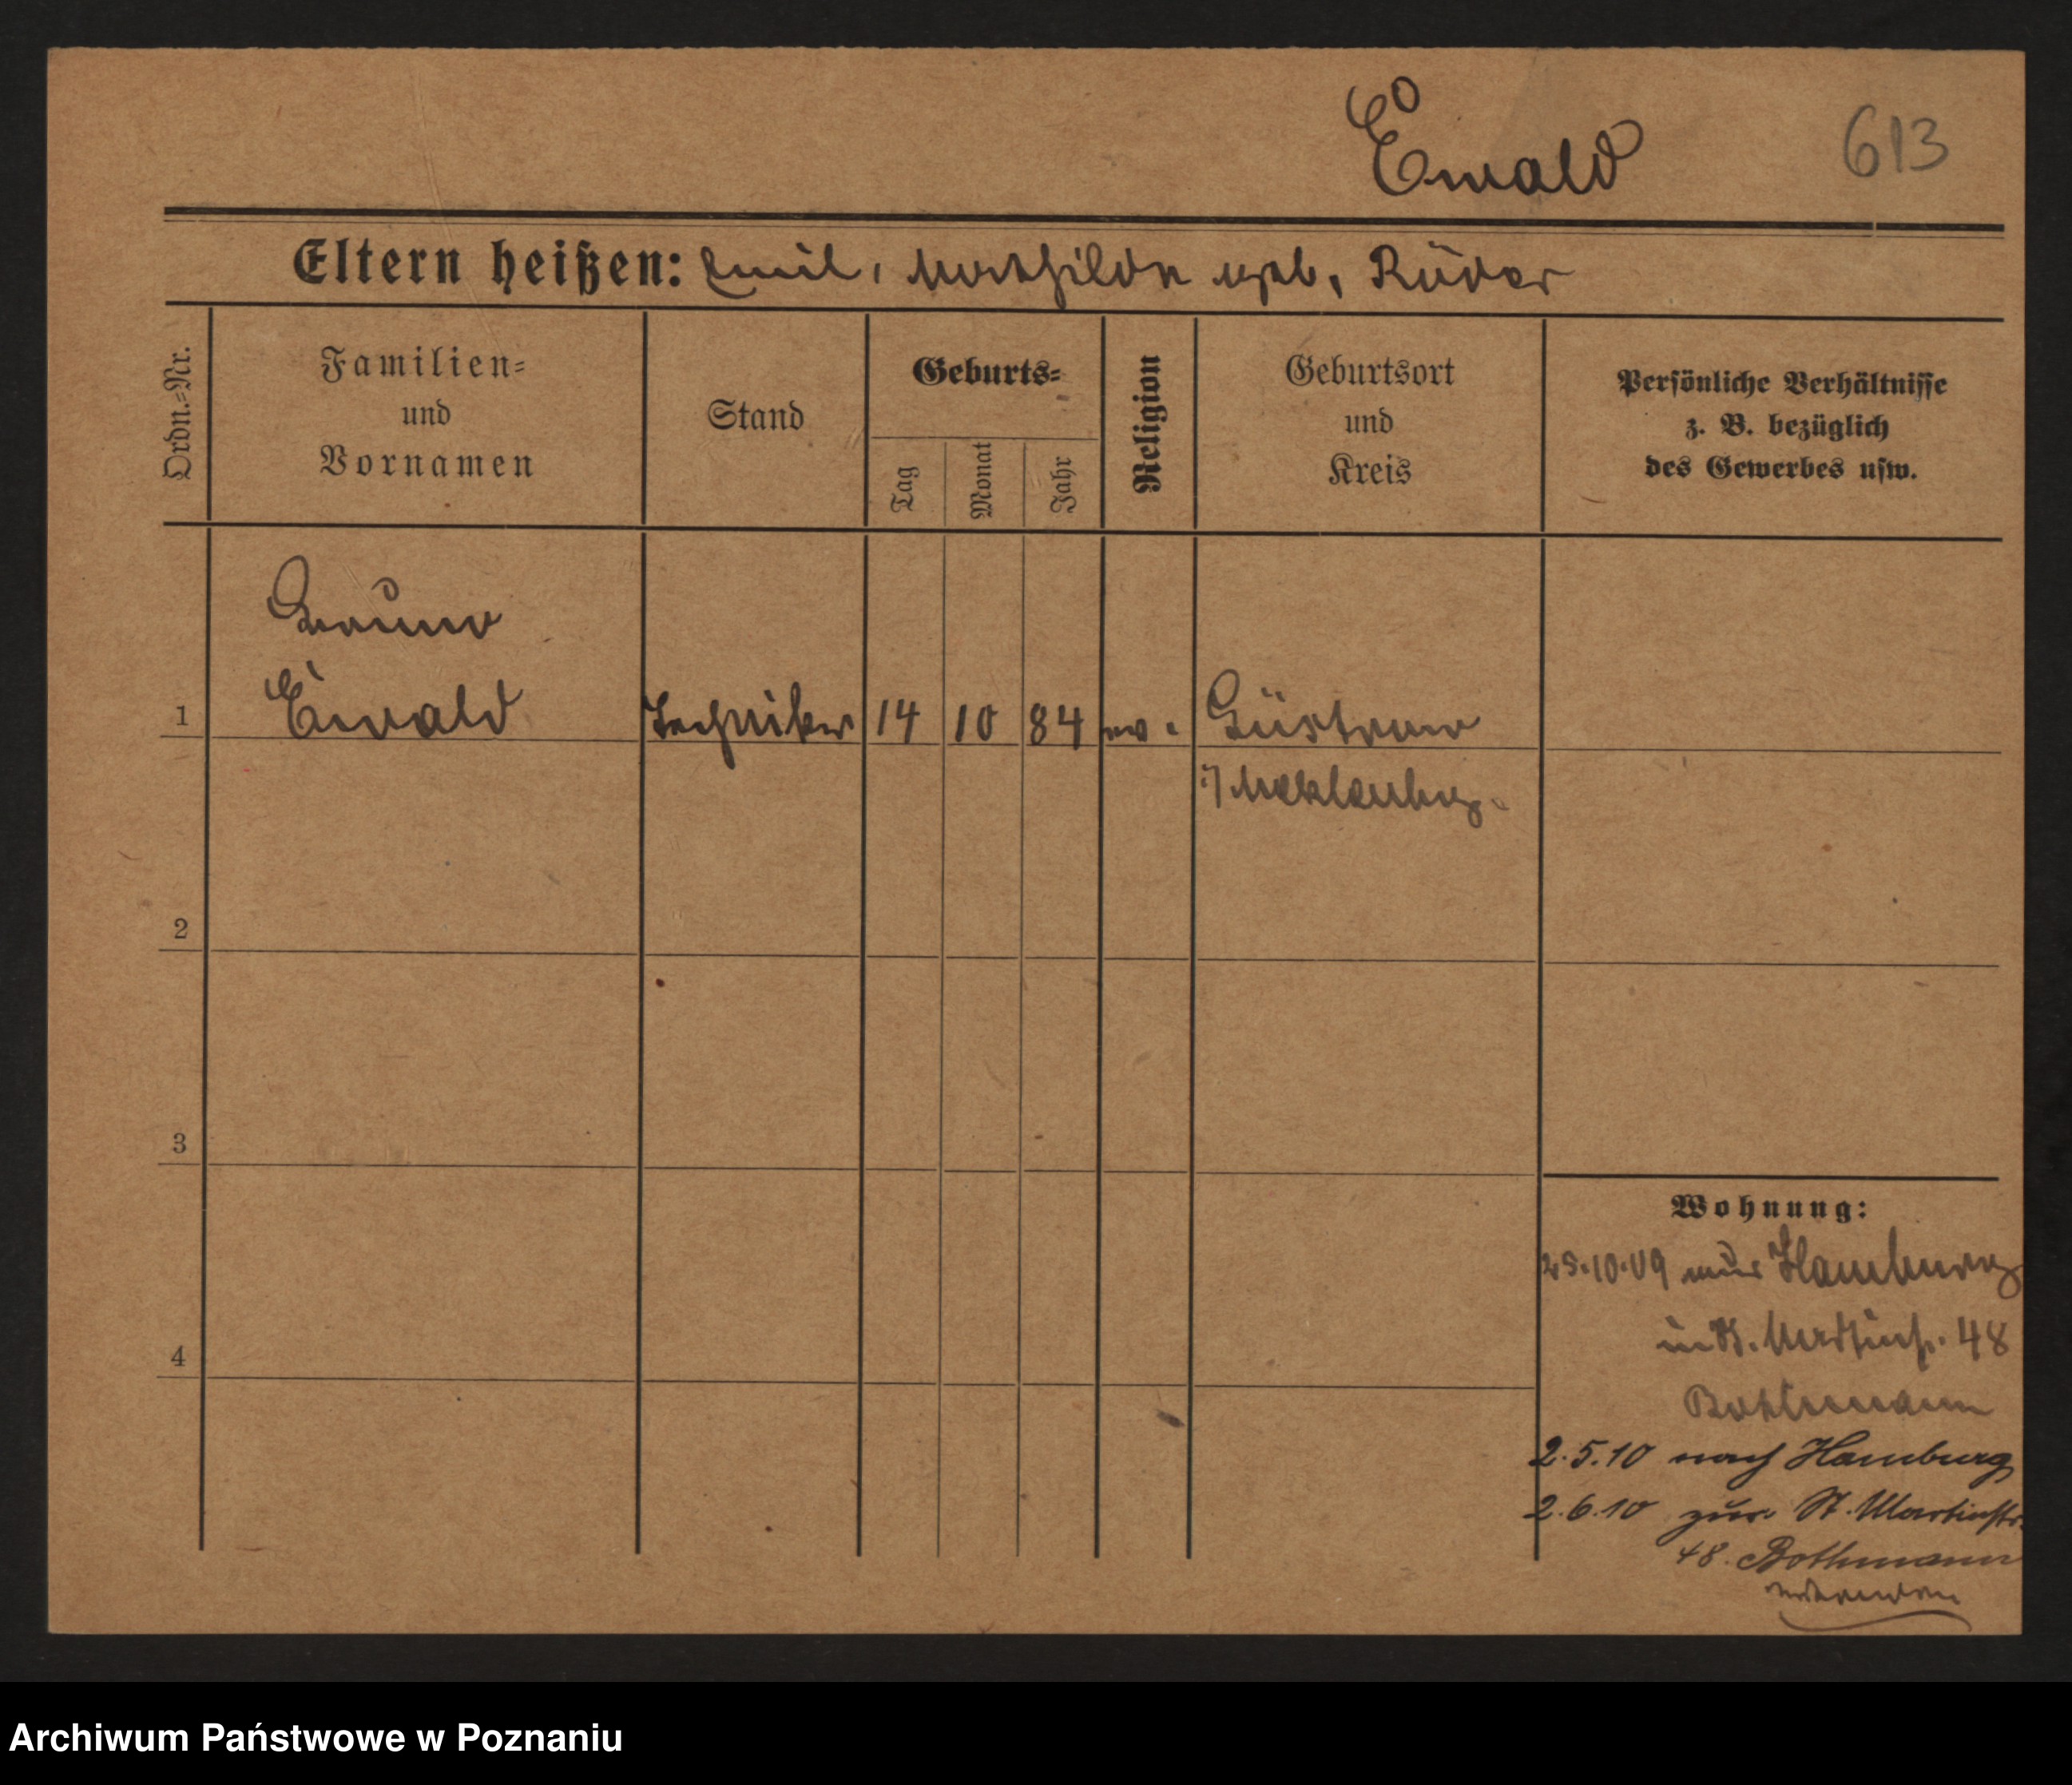 Ewald
613
Eltern heißen: Emil, Mathilde geb. Rüder
Ordn.-Nr.
Familien-
und
Vornamen
Stand
Geburts-
Tag
Monat
Jahr
Religion
Geburtsort
und
Kreis
Persönliche Verhältnisse
z. B. bezüglich
des Gewerbes usw.
1
Ewald
Techniker
14
10
84
ev.
Güstrow
i/Meklenbg.
2
3
4
Wohnung:
25.10.09 aus Hamburg
in St. Martinstr. 48
Bothmann
2.5.10 nach Hamburg
2.6.10 zur. St. Martinstr.
48. Bothmann
Archiwum Państwowe w Poznaniu